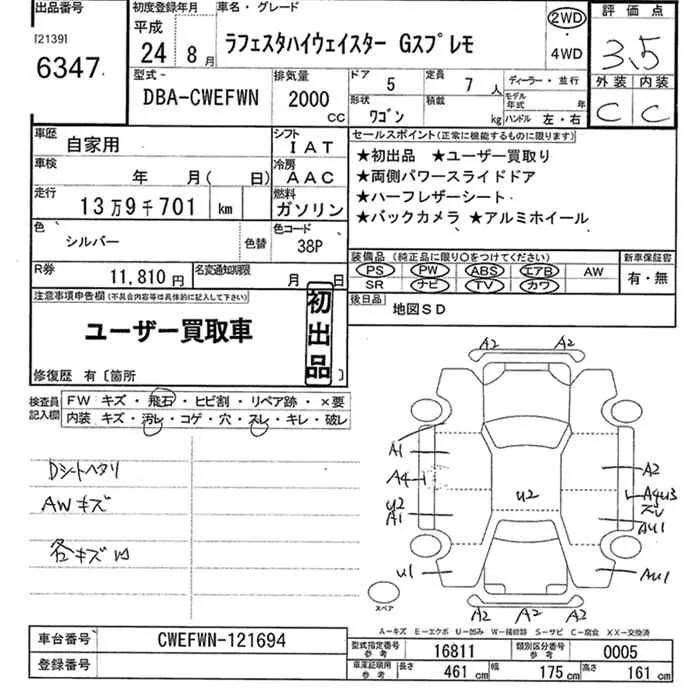 出品番号
[2139]
6347
初度登録年月
平成
24年 8月
車名・グレード
ラフェスタハイウェイスター Gスプレモ
2WD
・
4WD
評価点
3.5
外装 内装
C C
型式
DBA-CWEFWN
排気量
2000
CC
ドア 5
定員 7人
形状 ワゴン
積載 kg
ディーラー・並行
モデル年式 年
ハンドル 左・右
車歴 自家用
シフト IAT
車検 年 月( 日)
冷房 AAC
走行 13万9千701 km
燃料 ガソリン
色 シルバー 色替
色コード 38P
R券 11,810円
名変通知期限 月 日
セールスポイント(正常に機能するものに限ります)
★初出品 ★ユーザー買取り
★両側パワースライドドア
★ハーフレザーシート
★バックカメラ ★アルミホイール
装備品(純正品に限り○をつけてください)
PS PW ABS エアB AW
SR ナビ TV カワ
新車保証書
有・無
後日品 地図SD
注意事項申告欄(不具合内容等は具体的に記入して下さい)
ユーザー買取車
初出品
修復歴 有〔箇所 〕
検査員記入欄
FW キズ・飛石・ヒビ割・リペア跡・×要
内装 キズ・汚レ・コゲ・穴・スレ・キレ・破レ
Dシートヘタリ
AWキズ
各キズ凹
A2 A2
A1
A4
U2
A1
U1
U2
A2
A4U3
ズレ
AU1
AU1
A2 A2 A2
スペア
A-キズ E-エクボ U-凹み W-補修跡 S-サビ C-腐食 XX-交換済
車台番号 CWEFWN-121694
登録番号
型式指定番号 参考 16811
類別区分番号 参考 0005
車庫証明用 参考 長さ 461cm 幅 175cm 高さ 161cm